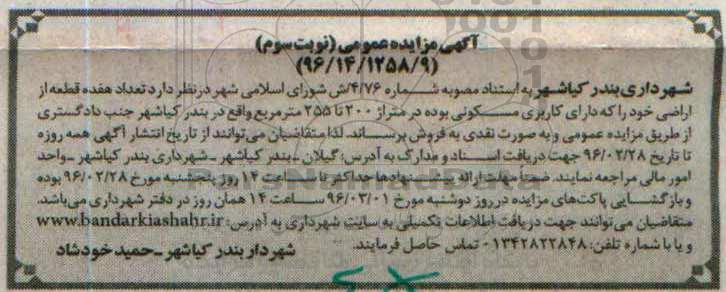 آگهی مزایده عمومی (نوبت سوم)
(۹۶/۱۴/۱۲۵۸/۹)
شهرداری بندر کیاشهر به استناد مصوبه شماره ۴/۷۶/ش شورای اسلامی شهر در نظر دارد تعداد هفده قطعه از
اراضی خود را که دارای کاربری مسکونی بوده در متراژ ۲۰۰ تا ۲۵۵ مترمربع واقع در بندر کیاشهر جنب دادگستری
از طریق مزایده عمومی و به صورت نقدی به فروش برساند. لذا متقاضیان می‌توانند از تاریخ انتشار آگهی همه روزه
تا تاریخ ۹۶/۰۲/۲۸ جهت دریافت اسناد و مدارک به آدرس: گیلان - بندر کیاشهر - شهرداری بندر کیاشهر - واحد
امور مالی مراجعه نمایند. ضمناً مهلت ارائه پیشنهادها حداکثر تا ساعت ۱۴ روز پنجشنبه مورخ ۹۶/۰۲/۲۸ بوده
و بازگشایی پاکت‌های مزایده در روز دوشنبه مورخ ۹۶/۰۳/۰۱ ساعت ۱۴ همان روز در دفتر شهرداری می‌باشد.
متقاضیان می‌توانند جهت دریافت اطلاعات تکمیلی به سایت شهرداری به آدرس: www.bandarkiashahr.ir
و یا با شماره تلفن: ۰۱۳۴۲۸۲۲۸۴۸ تماس حاصل فرمایند.
شهردار بندر کیاشهر - حمید خودشاد